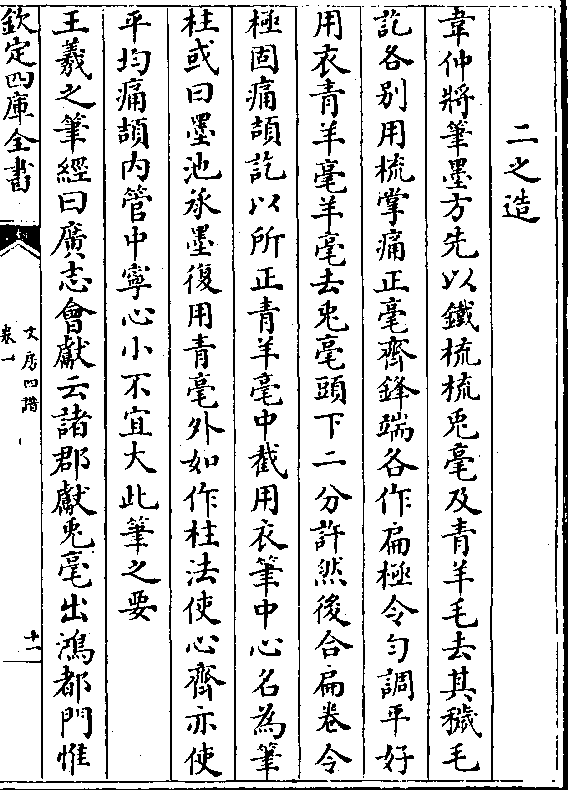 二之造
韋仲將筆墨方先以鐵梳梳兎毫及青羊毛去其穢毛
訖各别用梳掌痛正毫齊鋒端各作扁極令匀調平好
用衣青羊毫羊毫去兎毫頭下二分許然後合扁卷令
極固痛頡訖以所正青羊毫中截用衣筆中心名為筆
柱或曰墨池承墨復用青毫外如作柱法使心齊亦使
平均痛頡内管中寧心小不宜大此筆之要
王羲之筆經曰廣志會獻云諸郡獻兎毫出鴻都門惟
欽定四庫全書
文房四譜
卷一
十一